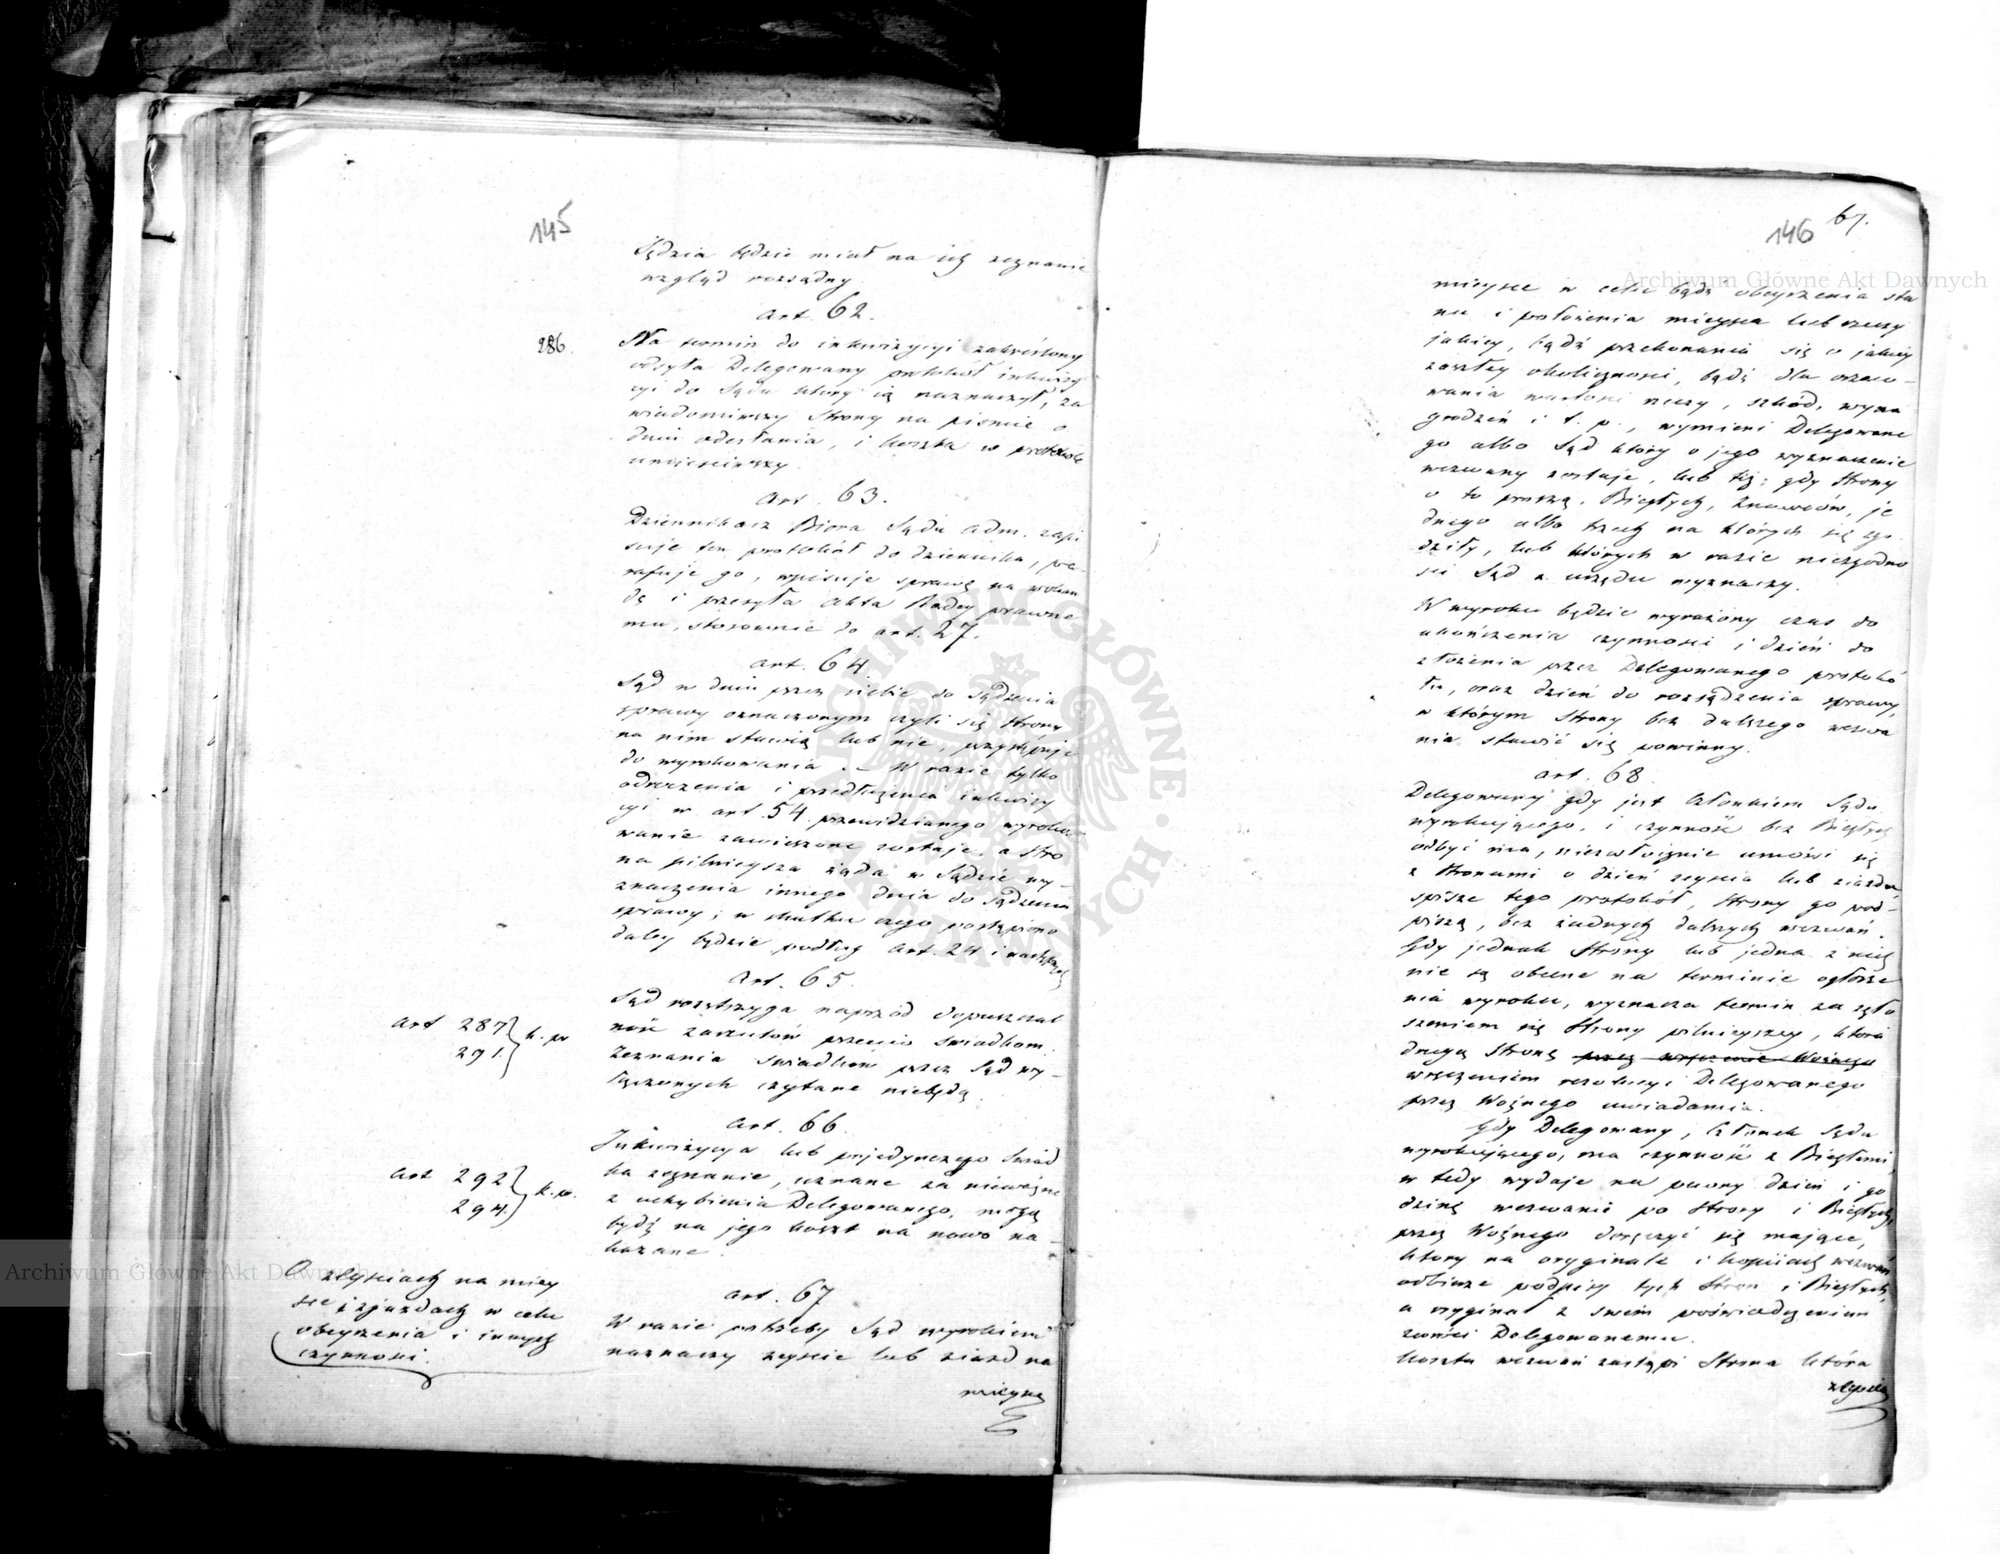 145
Sędzia będzie miał na ich zeznanie
wzgląd rozsądny
Art. 62.
286.
Na termin do inkwizycyi zakreślony
odsyła Delegowany protokół inkwizy
cyi do Sądu który ią naznaczył, za
wiadomiwszy Strony na piśmie o
dniu odesłania, i koszta w protokole
umieściwszy.
Art. 63.
Dziennikarz Biora Sądu Adm. zapi
suje ten protokół do dziennika, pa-
rafuje go, wpisuje sprawę na wokan
dę i przesyła Akta Radcy prawne
mu, stosownie do art. 27.
Art. 64
Sąd w dniu przez siebie do Sądzenia
sprawy oznaczonym czyli się Strony
na nim stawią lub nie, przystępuje
do wyrokowania. – W razie tylko
odroczenia i przedłużenia inkwizy
cyi w art. 54 przewidzianego wyroko
wanie zawieszone zostaje, a Stro
na pilnieysza żąda w Sądzie wy-
znaczenia innego dnia do Sądzenia
sprawy; w skutku czego postąpiono
daley będzie podług Art. 24 i następnych
Art. 65.
Art 287 } k. p.
291.
Sąd rozstrzyga naprzód dopuszczal
ność zarzutów przeciw świadkom.
Zeznania świadków przez Sąd wy-
łączonych czytane niebędą.
Art. 66.
Art 292 } k. p.
294.
Inkwizycya lub pojedynczego świad
ka zeznanie, uznane za nieważne
z uchybienia Delegowanego, mogą
bydź na jego koszt na nowo na-
kazane.
O zeyściach na miey
sce i zjazdach w celu
obeyrzenia i innych
czynności.
Art. 67
W razie potrzeby Sąd wyrokiem
naznaczy zeyście lub ziazd na
mieysce
146
67.
mieysce w celu bądź obeyrzenia sta
nu i położenia mieysca lub rzeczy
jakiey, bądź przekonania się o jakiey
zaszłey okoliczności, bądź dla oszaco-
wania wartości rzeczy, szkód, wyna
grodzeń i t. p., wymieni Delegowane
go albo Sąd który o jego wyznaczenie
wezwany zostaje, lub też: gdy Strony
o to proszą, Biegłych, Znawców, je
dnego albo trzech na których się zgo
dziły, lub których w razie niezgodno
ści Sąd z urzędu wyznaczy.
W wyroku będzie wyrażony czas do
ukończenia czynności i dzień do
złożenia przez Delegowanego protokó
łu, oraz dzień do rozsądzenia sprawy,
w którym Strony bez dalszego wezwa
nia stawić się powinny.
Art. 68.
Delegowany gdy jest Członkiem Sądu
wyrokującego, i czynność bez Biegłych
odbyć ma, niezwłocznie umówi się
z Stronami o dzień zeyścia lub ziazdu
spisze tego protokół, Strony go pod-
piszą, bez żadnych dalszych wezwań.
Gdy jednak Strony lub jedna z nich
nie są obecne na terminie ogłosze
nia wyroku, wyznacza termin za zgło
szeniem się Strony pilnieyszey, która
drugą Stronę przez wręczenie Woźnego
wręczeniem rezolucyi Delegowanego
przez Woźnego uwiadamia.
Gdy Delegowany, Członek Sądu
wyrokującego, ma czynność z Biegłemi,
w tedy wydaje na pewny dzień i go
dzinę wezwanie po Strony i Biegłych,
przez Woźnego doręczyć się mające,
który na oryginale i kopiiach wezwań
odbierze podpisy tych Stron i Biegłych,
a oryginał z swem poświadczeniem
zwróci Delegowanemu.
Koszta wezwań zastąpi Strona która
zeyścia
Archiwum Główne Akt Dawnych
Archiwum Główne Akt Dawnych
ARCHIWUM GŁÓWNE AKT DAWNYCH